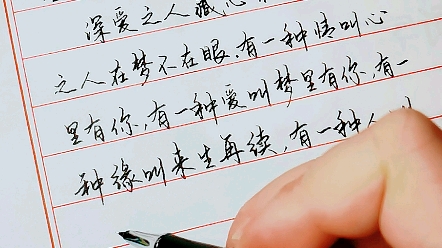 深爱之人藏心
之人在梦不在眼.有一种情叫心
里有你,有一种爱叫梦里有你,有一
种缘叫来生再续,有一种人